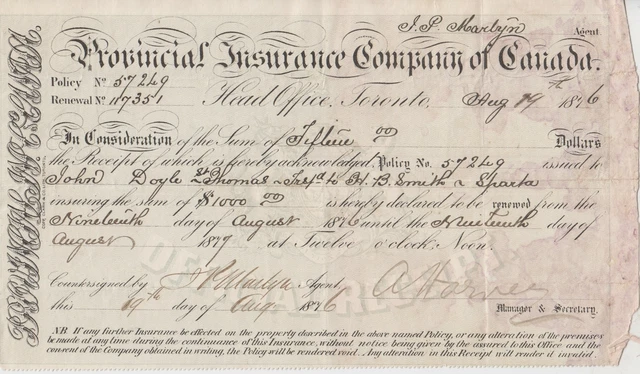 J. P. Marlyn Agent
Provincial Insurance Company of Canada.
Policy No 57249
Renewal No 117351 Head Office, Toronto, Aug 19th 1876
In Consideration of the Sum of Fifteen 00 Dollars
the Receipt of which is hereby acknowledged, Policy No. 57249 issued to
John Doyle St Thomas & Trsf'd to H. B. Smith Sparta
ensuring the sum of $1000 00 is hereby declared to be renewed from the
Nineteenth day of August 1876 until the Nineteenth day of
August 1877 at Twelve o'clock, Noon.
Countersigned by J P Marlyn Agent
this 19th day of Aug 1876 Manager & Secretary.
N.B. If any further Insurance be effected on the property described in the above named Policy, or any alteration of the premises
be made at any time during the continuance of this Insurance, without notice being given by the assured to this Office and the
consent of the Company obtained in writing, the Policy will be rendered void. Any alteration in this Receipt will render it invalid.